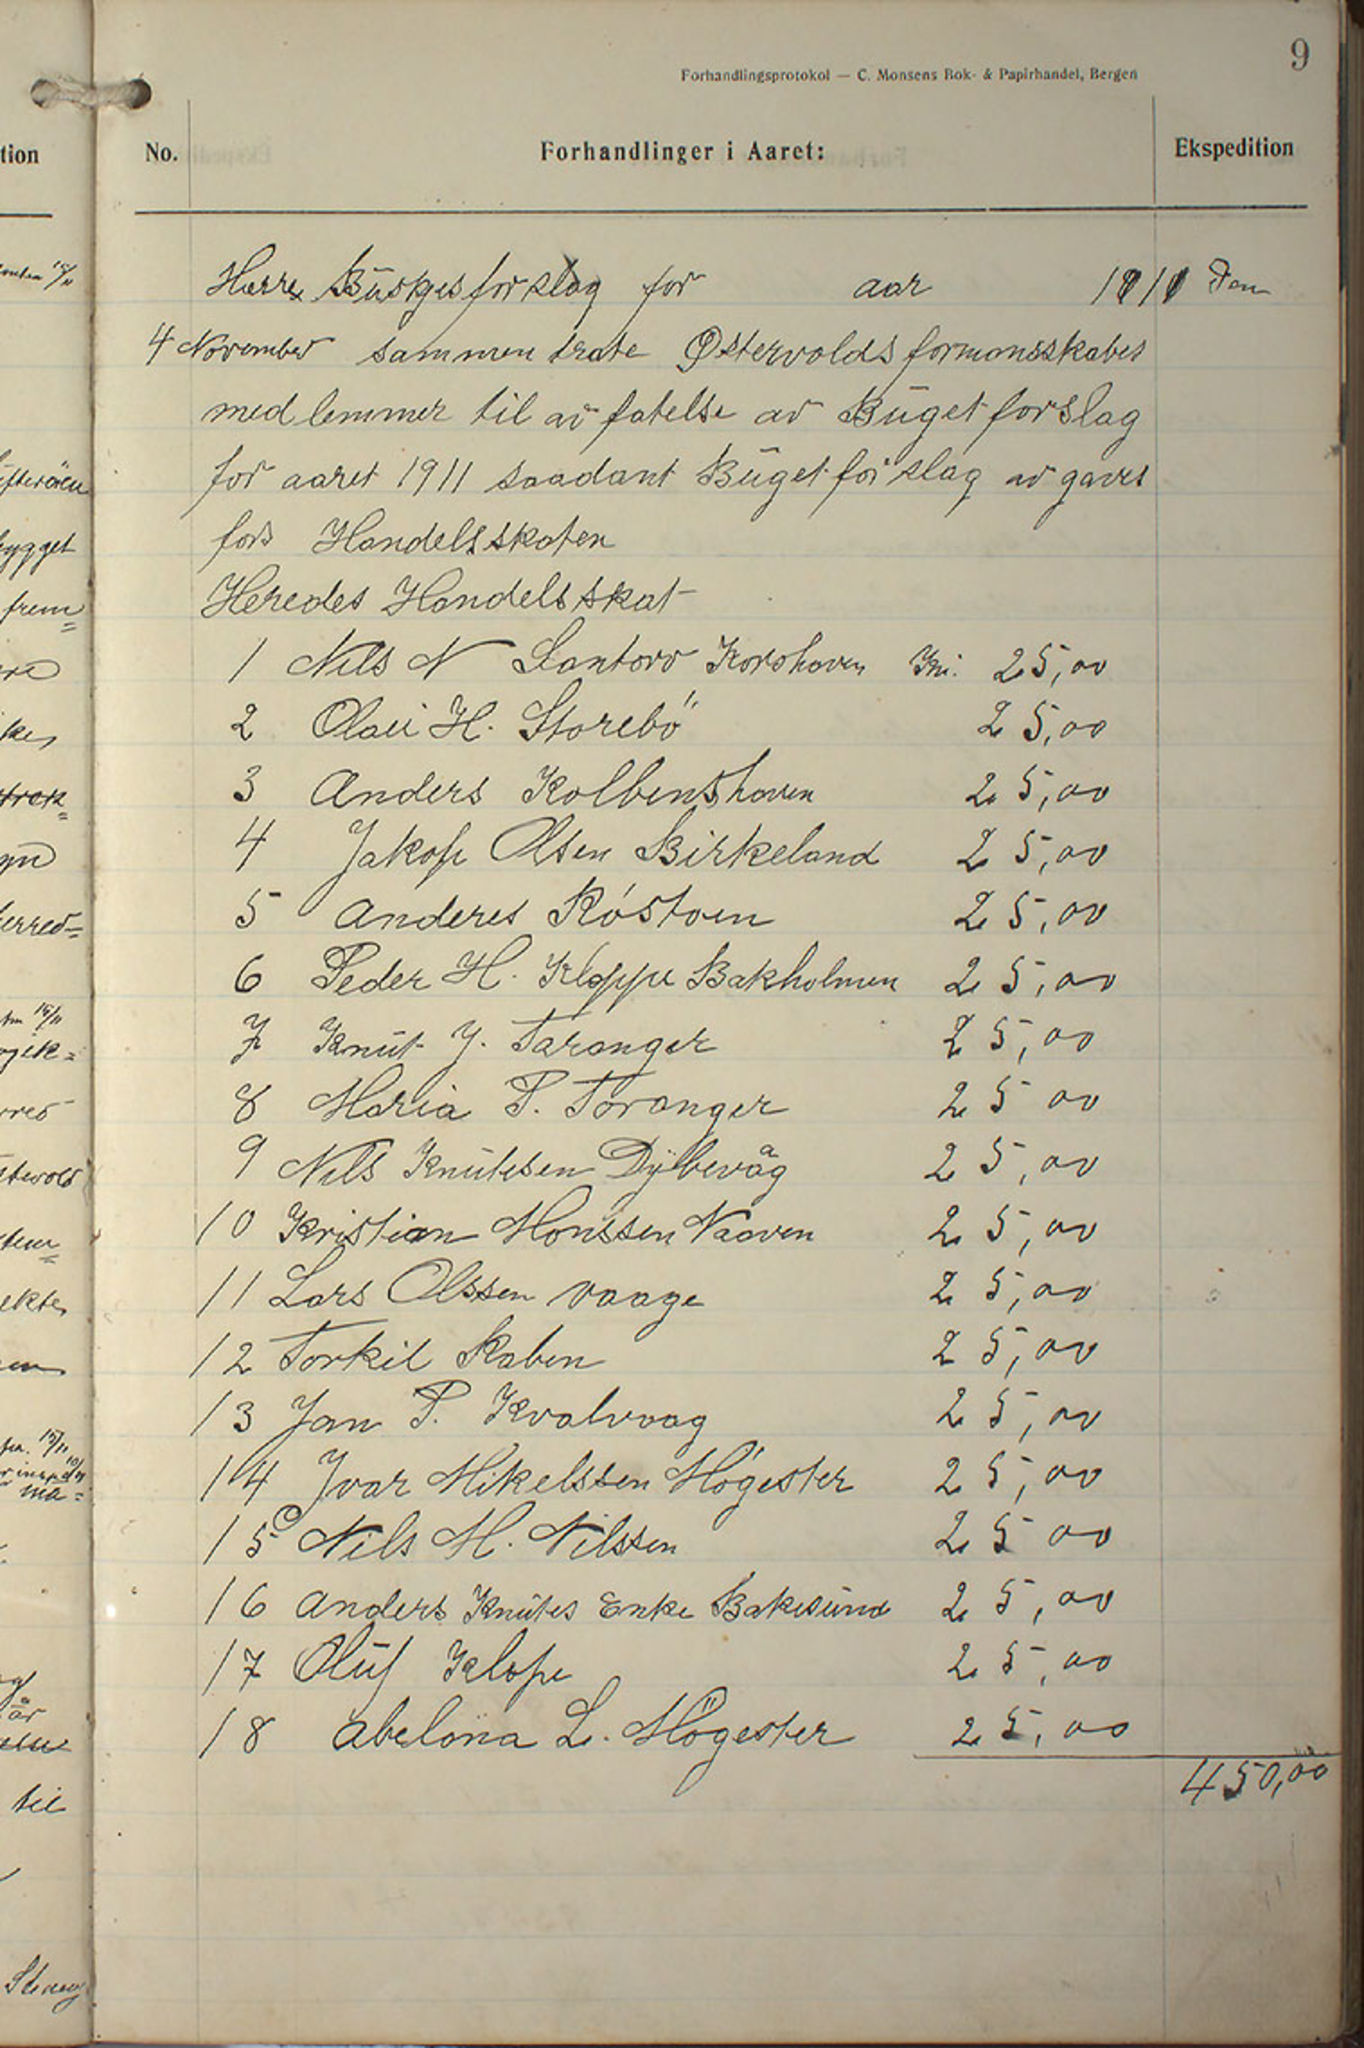 9
Forhandlingsprotokol — C. Monsens Bok- & Papirhandel, Bergen
No. Forhandlinger i Aaret: Ekspedition
Herre Büsgesforslag for aar 1911 Den
4 November sammen trate Østervolds formansskabes
medlemmer til av fatelse av Büget forslag
for aaret 1911 saadant Büget forslag av gaves
fors Handelsskaten
Heredes Handelsskat
1 Nils N Santorv Korshaven Kr. 25,00
2 Olai H. Storebö 25,00
3 Anders Kolbenshaven 25,00
4 Jakop Olsen Birkeland 25,00
5 Anderes Róstoen 25,00
6 Peder H. Kloppe Bakholmen 25,00
7 Knüt J. Taranger 25,00
8 Maria P. Toranger 25 00
9 Nils Knütesen Dÿbevåg 25,00
10 Kristian Monssen Naaven 25,00
11 Lars Olssen vaage 25,00
12 Torkil Skaben 25,00
13 Jan P. Kvalvaag 25,00
14 Ivar Mikelssen Møgester 25,00
15 Nils M. Nilssen 25 00
16 Anders Knütes Enke Bakesünd 25,00
17 Olüf Klope 25,00
18 Abelona L. Mögester 25,00
450,00
tion
ygget
frem
til